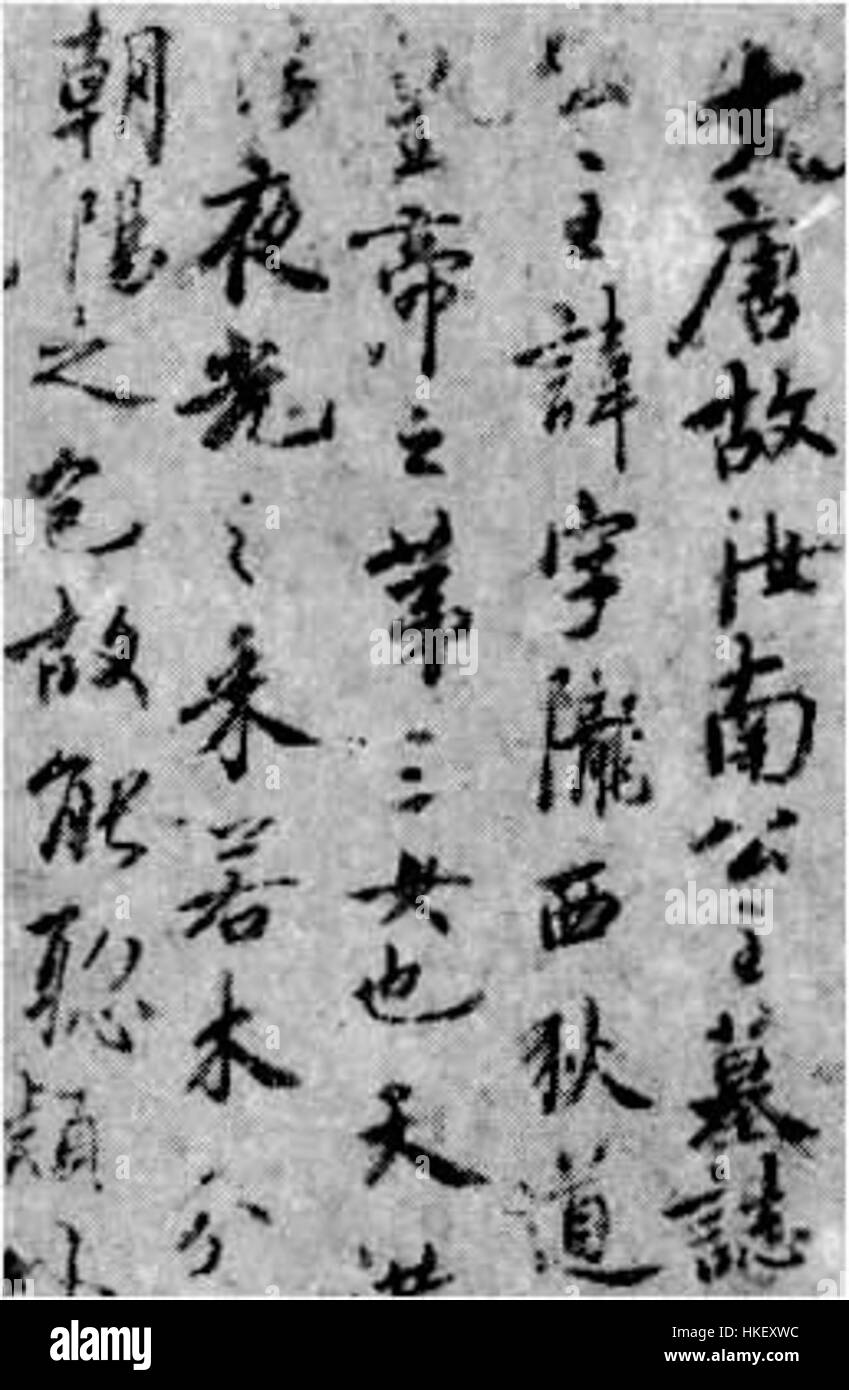 大唐故汝南公主墓誌
公主諱字隴西狄道
皇帝之第三女也天
夜光之采若木分
朝陽之色故能聰穎
a alamy stock photo
HKEXWC
www.alamy.com